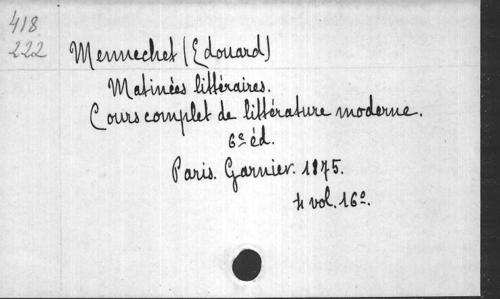 418
222
Mennechet (Edouard)
Matinées littéraires.
Cours complet de littérature moderne.
6e éd.
Paris. Garnier. 1875.
4 vol. 16o.